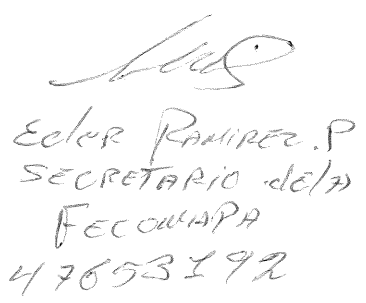 Edur RAMIREZ.P
SECRETARIO dela
FECOMAPA
47653192